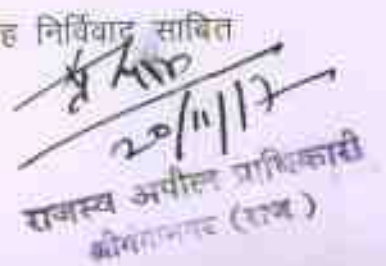 ह निर्विवाद साबित
20/11/17
राजस्व अपील प्राधिकारी
श्रीगंगानगर (राज)